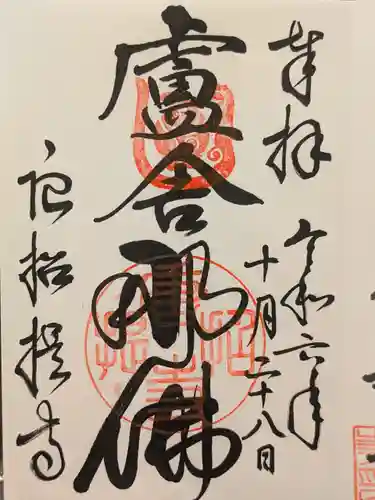 奉拝
令和六年
十月二十八日
盧舎那佛
唐招提寺